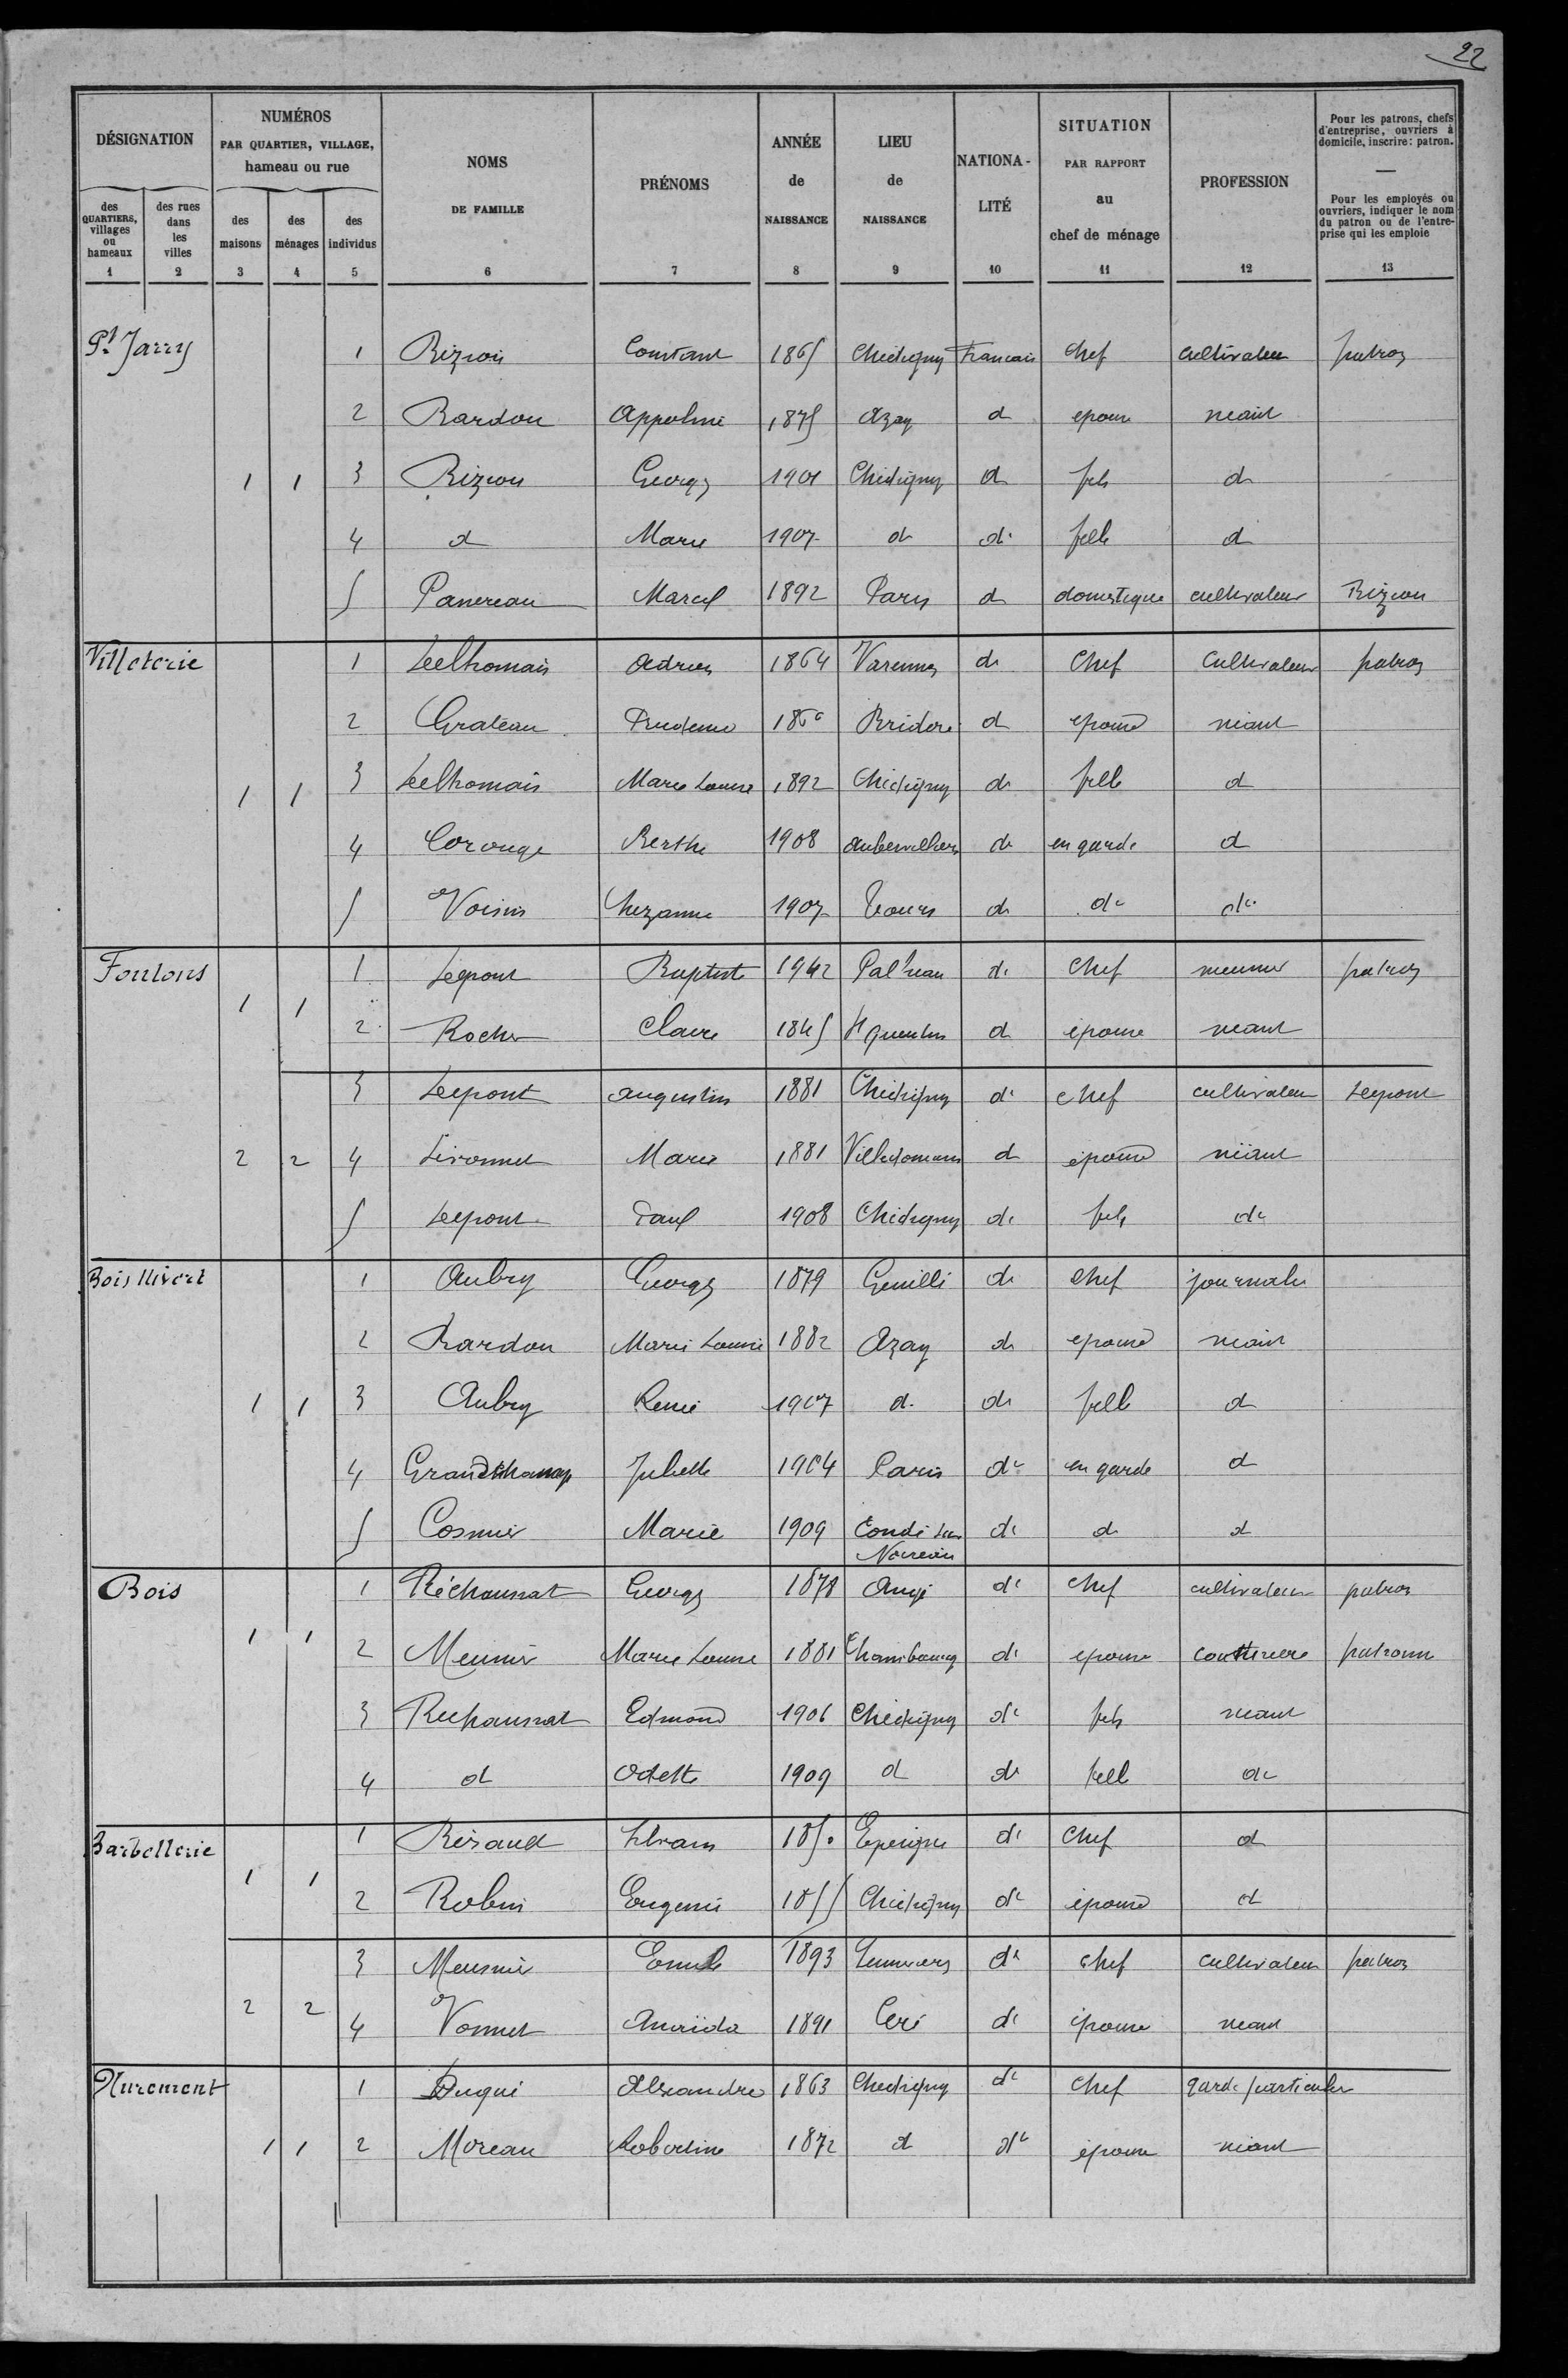 22
DÉSIGNATION
NUMÉROS PAR QUARTIER, VILLAGE, hameau ou rue
NOMS DE FAMILLE
PRÉNOMS
ANNÉE de NAISSANCE
LIEU de NAISSANCE
NATIONA-LITÉ
SITUATION PAR RAPPORT au chef de ménage
PROFESSION
Pour les patrons, chefs d'entreprise, ouvriers à domicile, inscrire: patron.
—
Pour les employés ou ouvriers, indiquer le nom du patron ou de l'entre-prise qui les emploie
des QUARTIERS, villages ou hameaux
des rues dans les villes
des maisons
des ménages
des individus
1 2 3 4 5 6 7 8 9 10 11 12 13
Pt Jarry 1 Constant 1865 Chedigny Francais chef cultivateur patron
2 Bardou Appoline 1875 Azay d epouse neant
1 1 3 Georges 1901 Chedigny d fils d
4 d Marie 1907 d d fille d
5 Panereau Marcel 1892 Paris d domestique cultivateur
Villeterie 1 Lelhomais Adrien 1864 Varennes d Chef Cultivateur patron
2 Grateau Prudence Bridoré d epouse néant
1 1 3 Lelhomais Marie Louise 1892 Chédigny d fille d
4 Corouge Berthe 1908 Aubervilliers d en garde d
5 Voisin Suzanne 1907 Tours d do do
Foulons 1 1 1 Lepont Baptiste 1942 d Chef meunier patron
2 Rocher Claire 1845 St Quentin d épouse neant
3 Lepont Augustin 1881 Chédigny d chef cultivateur Lepont
2 2 4 Livonnet Marie 1881 Villedomain d épouse néant
5 Lepont Paul 1908 Chédigny d fils do
Bois Nivert 1 Aubry Georges 1879 Genillé d Chef journalier
2 Bardou Marie Louise 1882 Azay d epouse neant
1 1 3 Aubry Renée 1907 d d fille d
4 Grandchamp Juliette 1904 Paris do en garde d
5 Cosnier Marie 1909 Condé sur d d d
Noireau
Bois 1 1 1 Réchaussat Georges 1878 Angé d chef cultivateur patron
2 Meunier Marie Louise 1881 Chambourg d epouse couturiere patronne
3 Rechaussat Edmond 1906 Chédigny do fils neant
4 d Odette 1909 d d fille do
Barbellerie 1 1 1 Silvain 1850 Epeigné d Chef d
2 Robin Eugenie 1855 Chédigny do épouse d
2 2 3 Meusnier Emile 1893 d chef cultivateur patron
4 Vonnet 1891 Céré d épouse neant
1 Duqué Alexandre 1863 Chedigny do Chef garde particulier
1 1 2 Moreau Robertine 1872 d do épouse néant